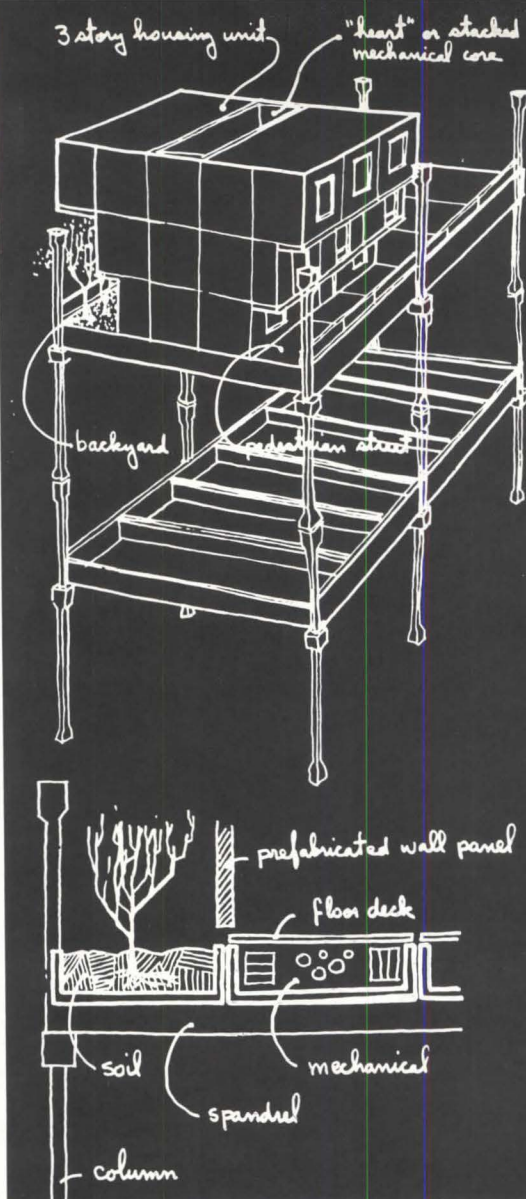 3 story housing unit
"heart" or stacked
mechanical core
backyard
pedestrian street
prefabricated wall panel
floor deck
soil
mechanical
spandrel
column